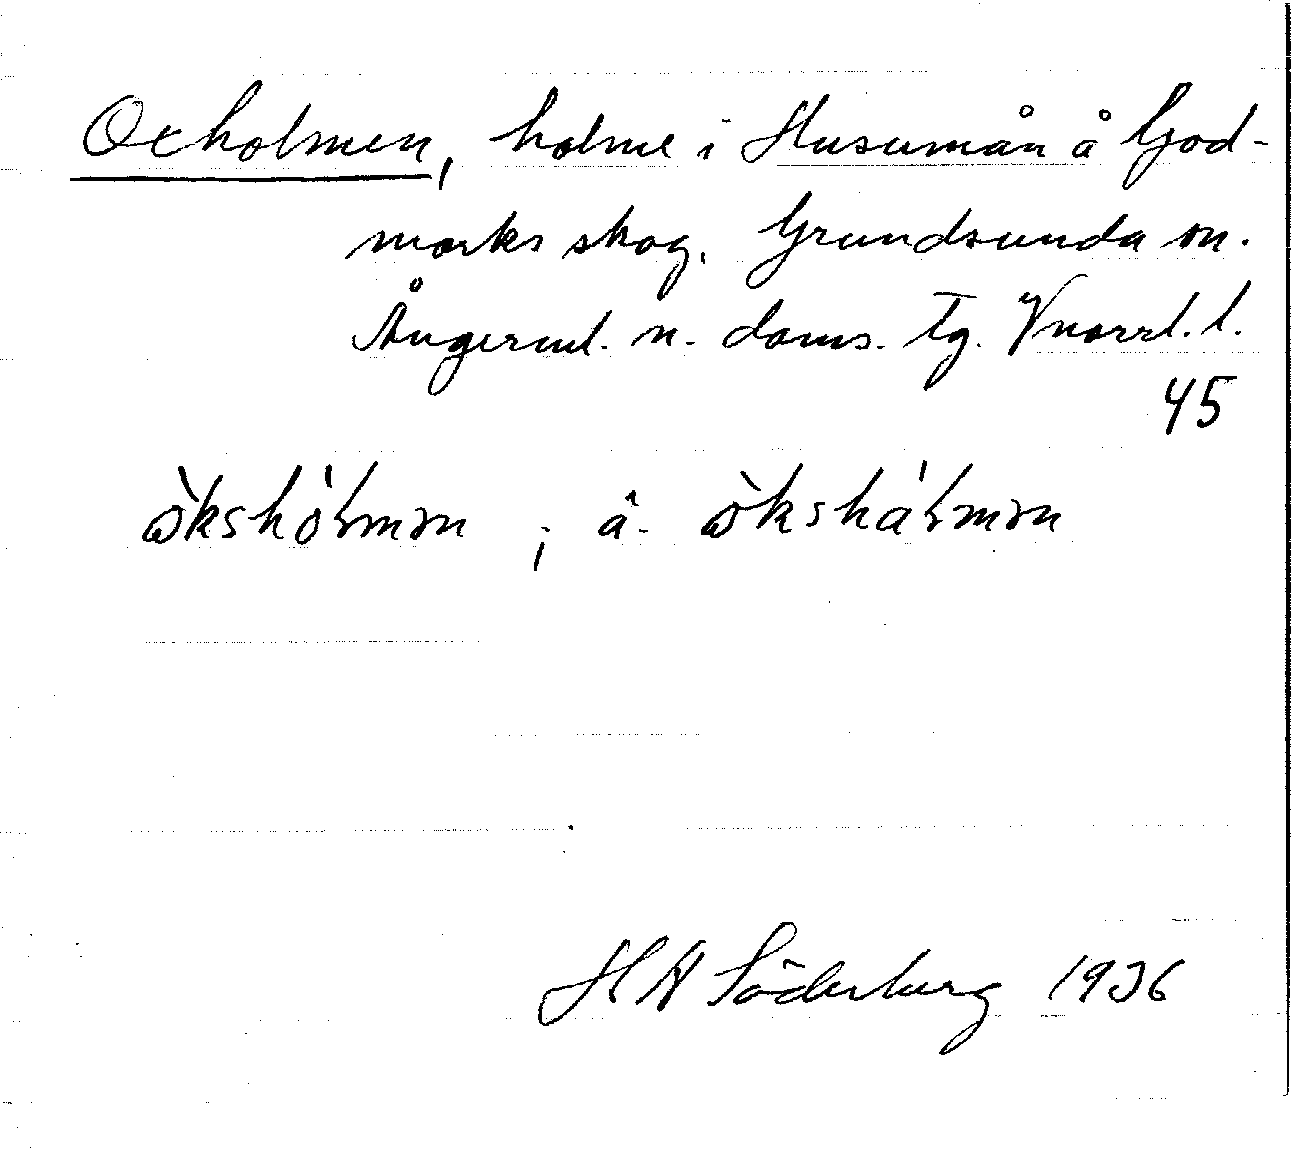 Oxholmen, holme i Husumån å God-
marks skog. Grundsunda sn.
Ångerml. n. doms. tg. Vnorrl. l.
45
ö̀kshólmɘn ; å- ö̀kshálmɘn
H A Söderberg 1936